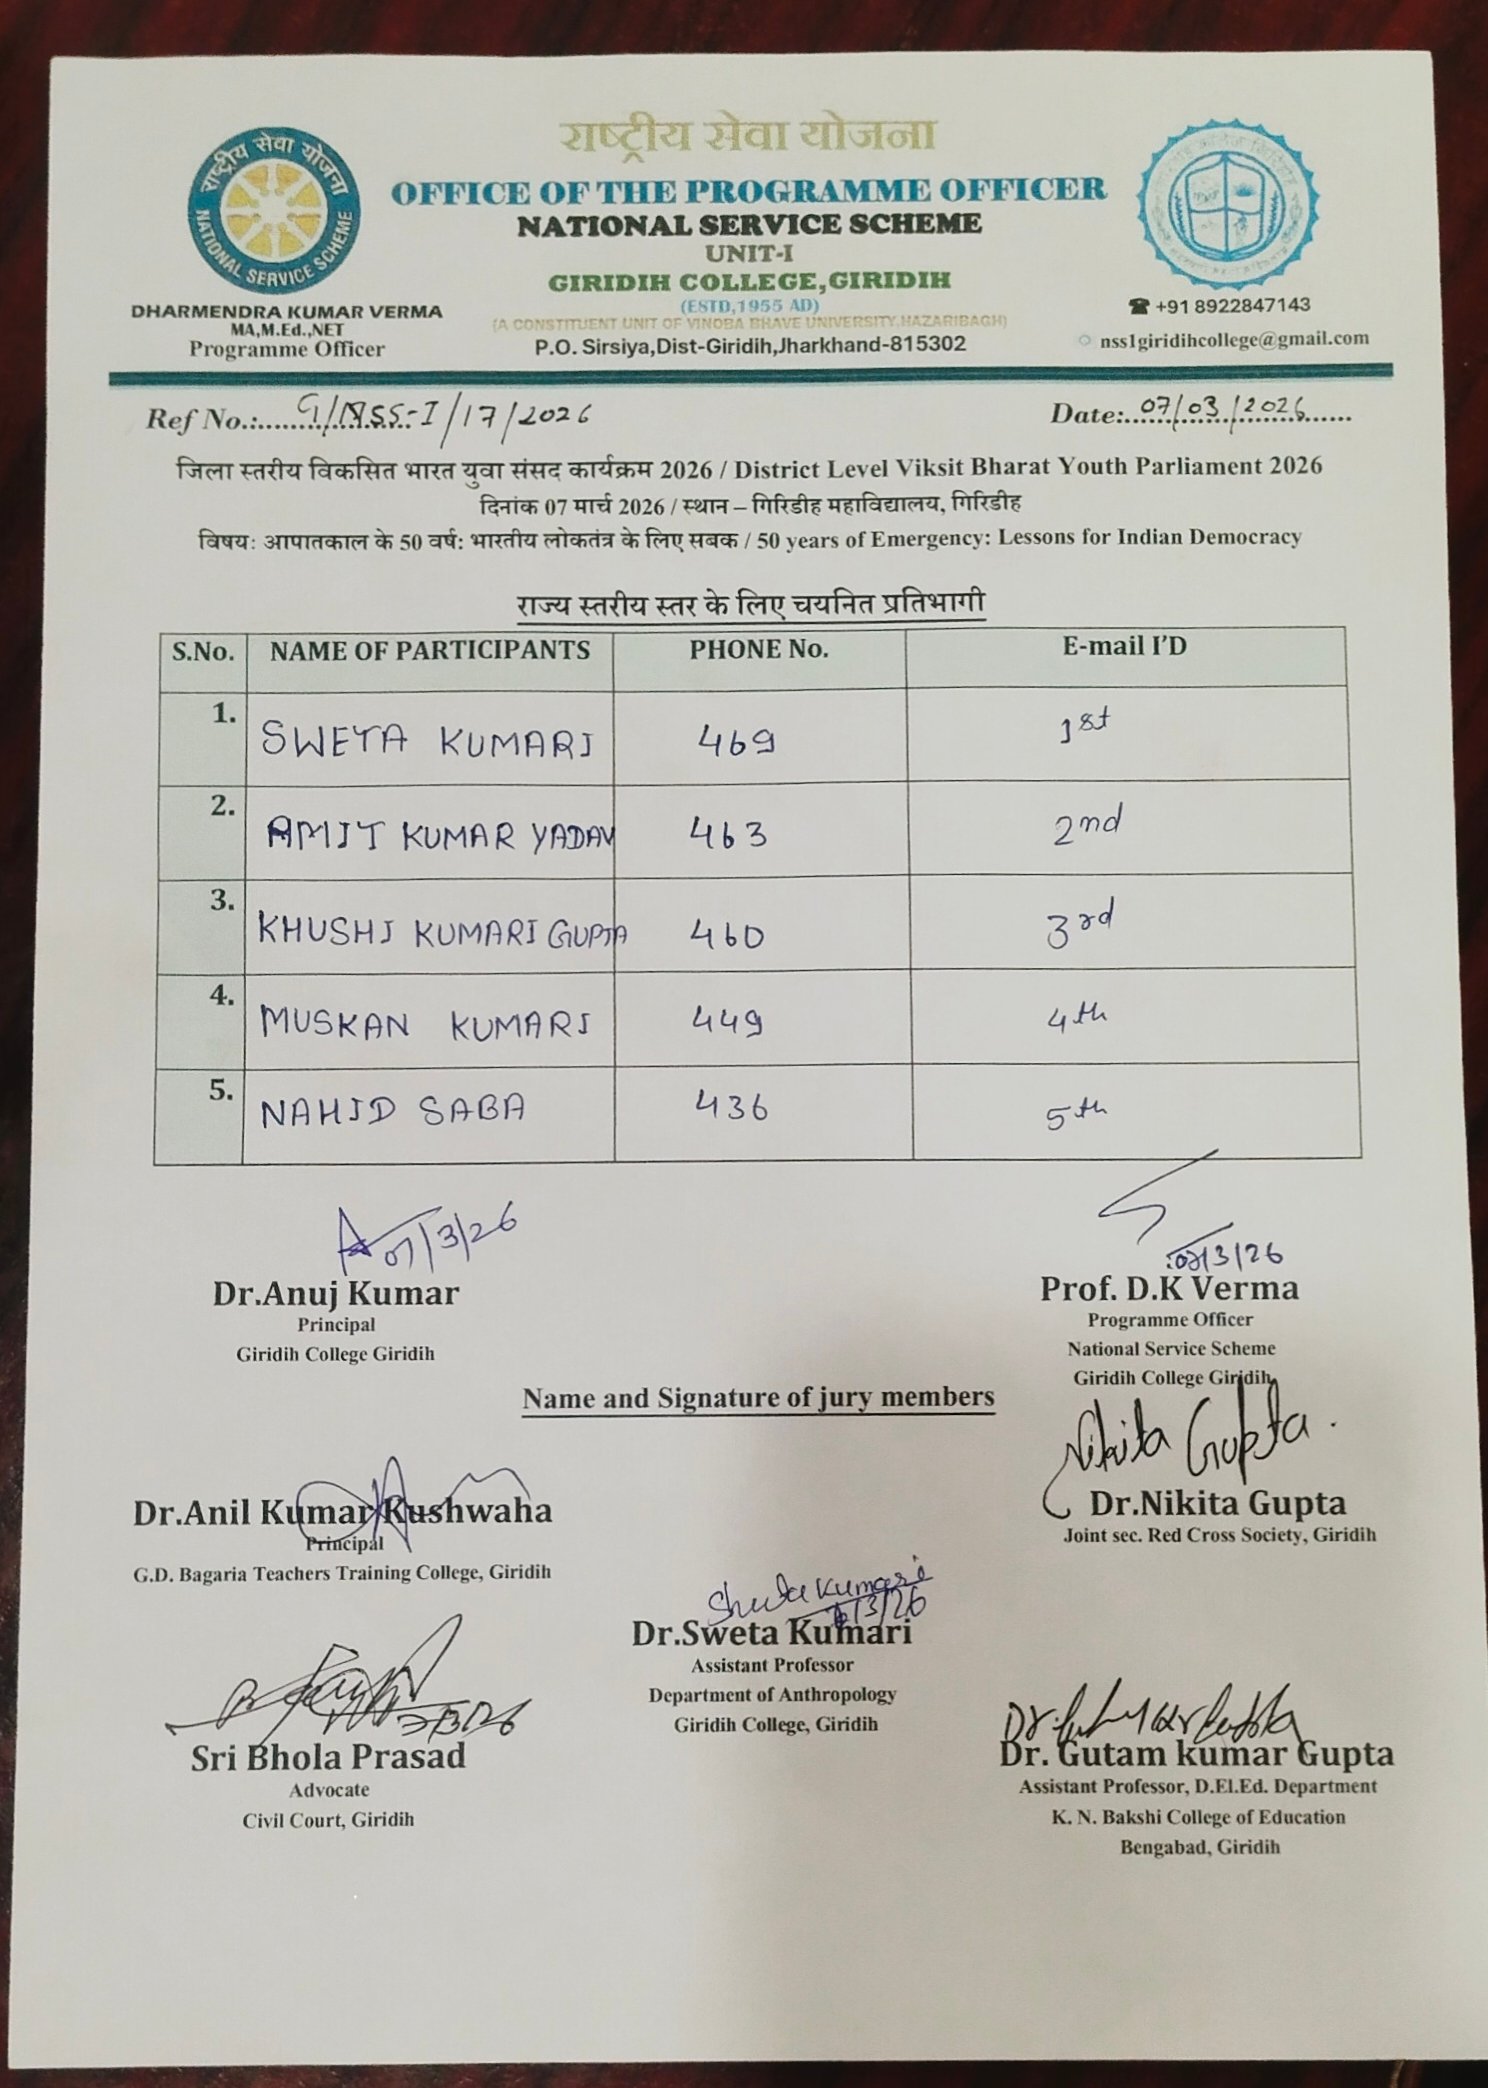 राष्ट्रीय सेवा योजना
NATIONAL SERVICE SCHEME
राष्ट्रीय सेवा योजना
OFFICE OF THE PROGRAMME OFFICER
NATIONAL SERVICE SCHEME
UNIT-I
GIRIDIH COLLEGE,GIRIDIH
(ESTD,1955 AD)
(A CONSTITUENT UNIT OF VINOBA BHAVE UNIVERSITY,HAZARIBAGH)
P.O. Sirsiya,Dist-Giridih,Jharkhand-815302
DHARMENDRA KUMAR VERMA
MA,M.Ed.,NET
Programme Officer
☎ +91 8922847143
nss1giridihcollege@gmail.com
Ref No.:......G/NSS-I/17/2026
Date:..07/03/2026......
जिला स्तरीय विकसित भारत युवा संसद कार्यक्रम 2026 / District Level Viksit Bharat Youth Parliament 2026
दिनांक 07 मार्च 2026 / स्थान – गिरिडीह महाविद्यालय, गिरिडीह
विषय: आपातकाल के 50 वर्ष: भारतीय लोकतंत्र के लिए सबक / 50 years of Emergency: Lessons for Indian Democracy
राज्य स्तरीय स्तर के लिए चयनित प्रतिभागी
S.No. NAME OF PARTICIPANTS PHONE No. E-mail I’D
1. SWETA KUMARI 469 1st
2. AMIT KUMAR YADAV 463 2nd
3. KHUSHI KUMARI GUPTA 460 3rd
4. MUSKAN KUMARI 449 4th
5. NAHID SABA 436 5th
07/3/26
Dr.Anuj Kumar
Principal
Giridih College Giridih
3/26
Prof. D.K Verma
Programme Officer
National Service Scheme
Giridih College Giridih
Name and Signature of jury members
Dr.Anil Kumar Kushwaha
Principal
G.D. Bagaria Teachers Training College, Giridih
Nikita Gupta.
Dr.Nikita Gupta
Joint sec. Red Cross Society, Giridih
Kumari
3/26
Dr.Sweta Kumari
Assistant Professor
Department of Anthropology
Giridih College, Giridih
Sri Bhola Prasad
Advocate
Civil Court, Giridih
Dr. Gutam kumar Gupta
Assistant Professor, D.El.Ed. Department
K. N. Bakshi College of Education
Bengabad, Giridih